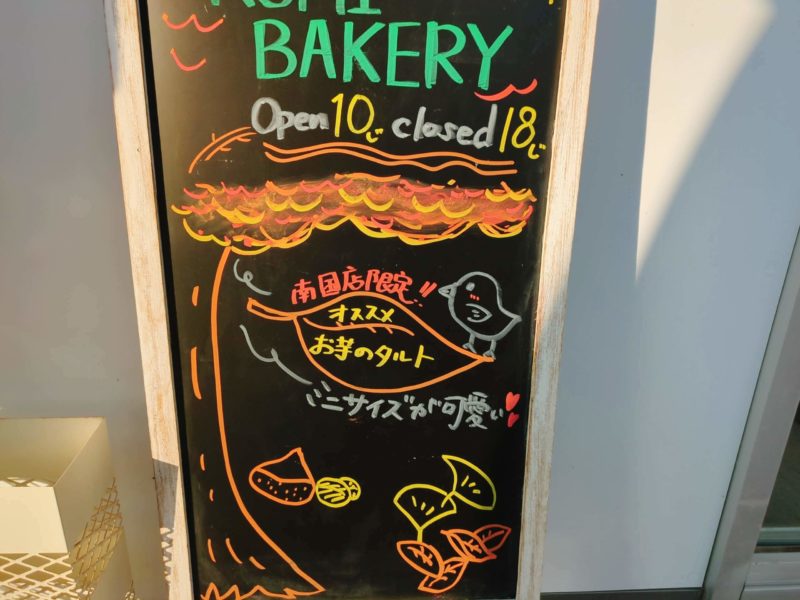 BAKERY
Open 10じ closed 18じ
南国店限定!!
オススメ
お芋のタルト
ミニサイズが可愛い